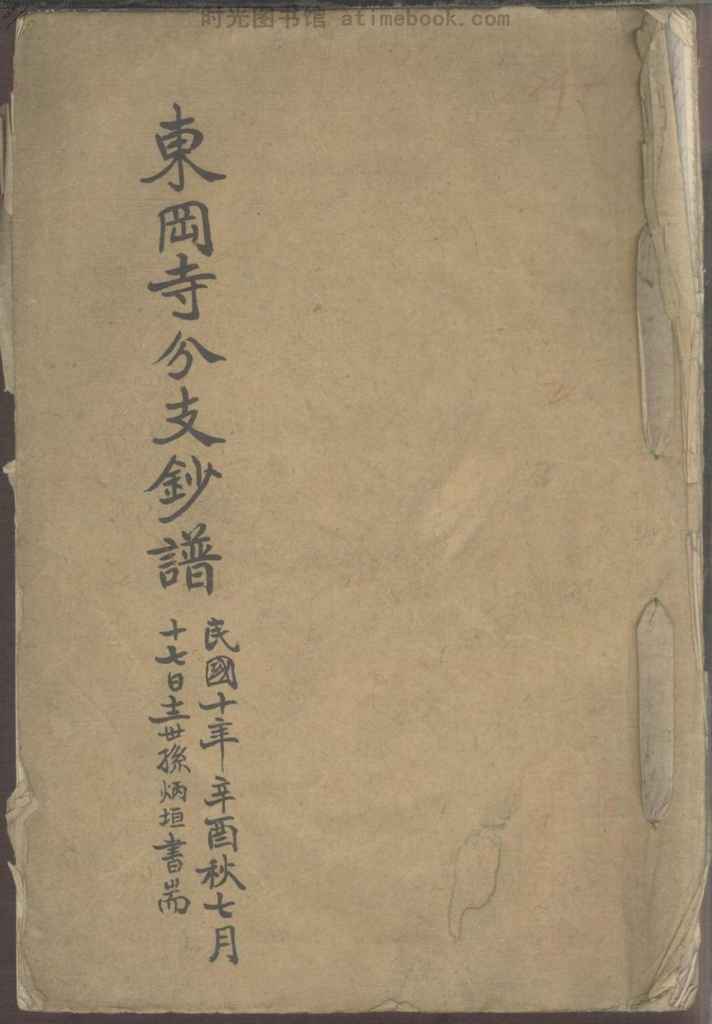 时光图书馆 atimebook.com
東岡寺分支鈔譜
民國十年辛酉秋七月
十七日十二世孫炳垣書耑